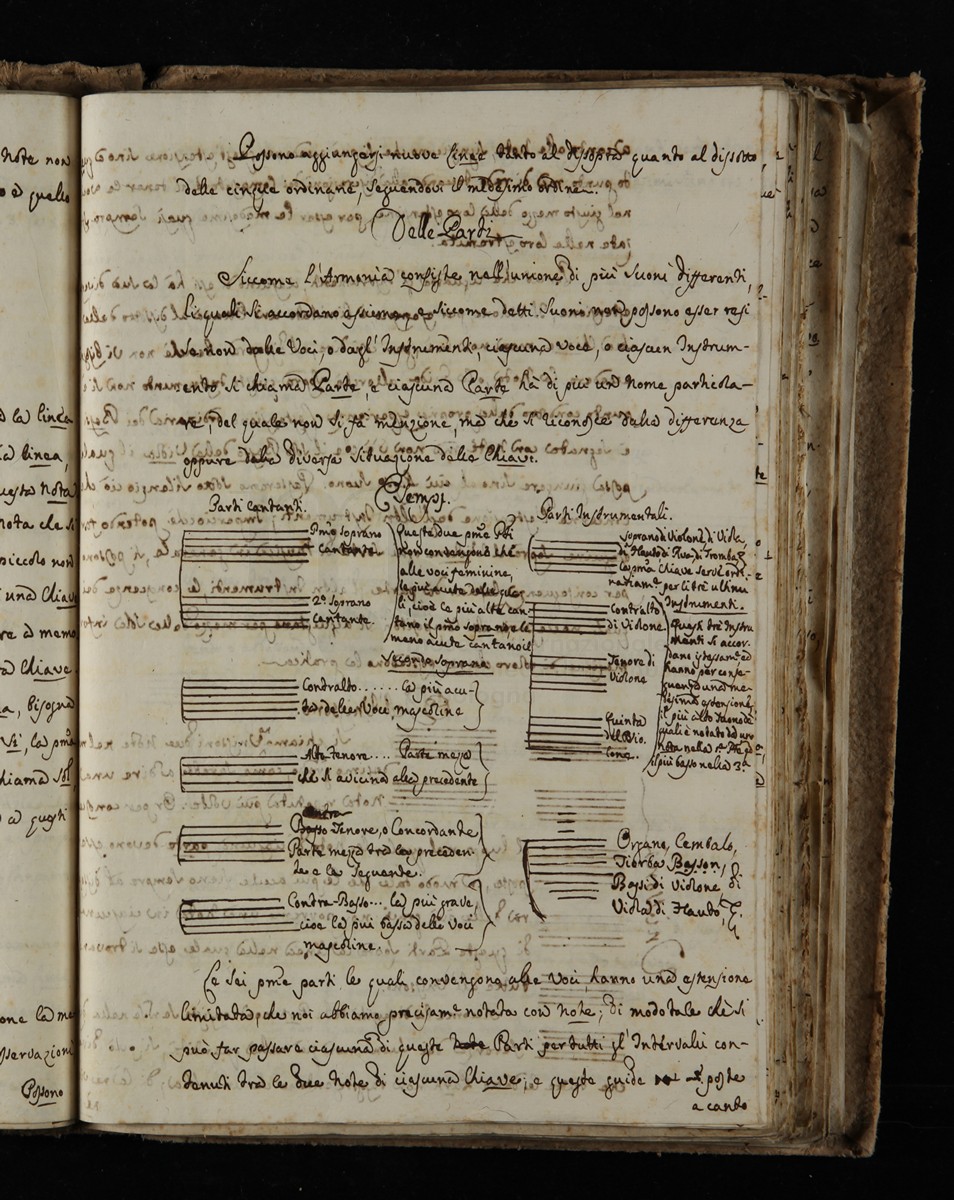 Possono aggiungersi nuove linee tanto al disopra quanto al dissotto,
delle cinque ordinarie, seguendosi il medesimo ordine.
Delle Parti
Siccome l'Armonia consiste nell'unione di più suoni differenti,
li quali si accordano assieme, e siccome detti suoni non possono esser resi
se non dalle Voci, o dagl'Instrumenti, ciascuna voce, o ciascun Instrum-
ento si chiama Parte, e ciascuna Parte hà di più un Nome particola-
re, del quale non si fà menzione, ma che si riconosce dalla differenza
oppure dalla diversa situazione delle Chiavi.
Esempj.
Parti Cantanti.
Pmo Soprano
Cantante
2º Soprano
Cantante.
Queste due pme Pti
non convengono che
alle voci feminine,
le più acute delle qua-
li, cioè le più alte can-
tano il pmo soprano, e le
meno acute cantano il
secondo soprano
Contralto....... la più acu-
ta delle Voci mascoline
Alto Tenore.... Parte mezza
che si avicina alla precedente
Basso Tenore, o Concordante
Parte mezza tra la preceden-
te e la seguente.
Contra-Basso... la più grave,
cioè la più bassa delle Voci
mascoline
Parti Instrumentali.
Soprano di Violone, di Viola,
di Flauto di
la pma Chiave
per li tre ultimi
Instrumenti.
Contralto
di Violone
Tenore di
Violone
Quinta
del Vio-
lone.
Questi tre Instru
menti si accor-
dano
hanno per conse-
guenza una me-
desima estensione
il più alto
quali è notato
nella
più basso nella 3ª
Organo, Cembalo,
Tiorba Basson,
Bassi di Violone di
Viola di Flauto,
Le sei pme parti le quali convengono alle Voci, hanno una estensione
limitata, che noi abbiamo precisame notata con Note; di modo tale chè si
può far passare ciascuna di queste Parti per tutti gl'Intervalli con-
tenuti tra le due Note di ciascuna Chiave; e queste guide poste
a canto
Note non
o a quello
a la linea
a linea,
uesta Nota
Nota che si
piccolo non
una Chiave
re a memo
a Chiave
a, bisogna
si, la pma
hiama Sol
a quest
one la me
sservazioni
Possono